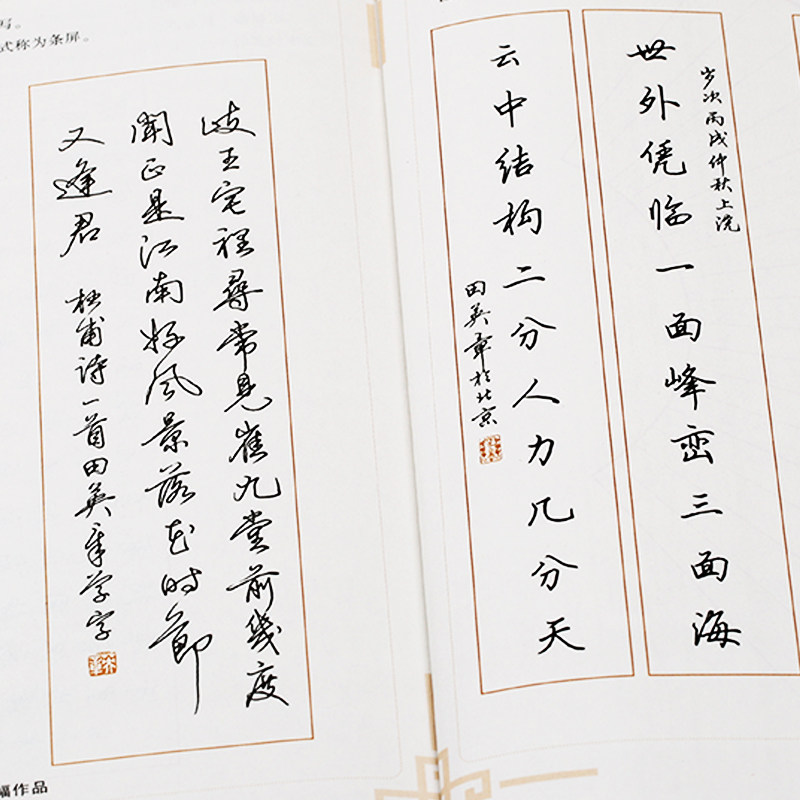 写。
式称为条屏。
岐王宅裡尋常見崔九堂前幾度
聞正是江南好风景落花时節
又逢君
杜甫诗一首田英章学字
幅作品
岁次丙戌仲秋上浣
世外凭临一面峰峦三面海
云中结构二分人力几分天
田英章於北京